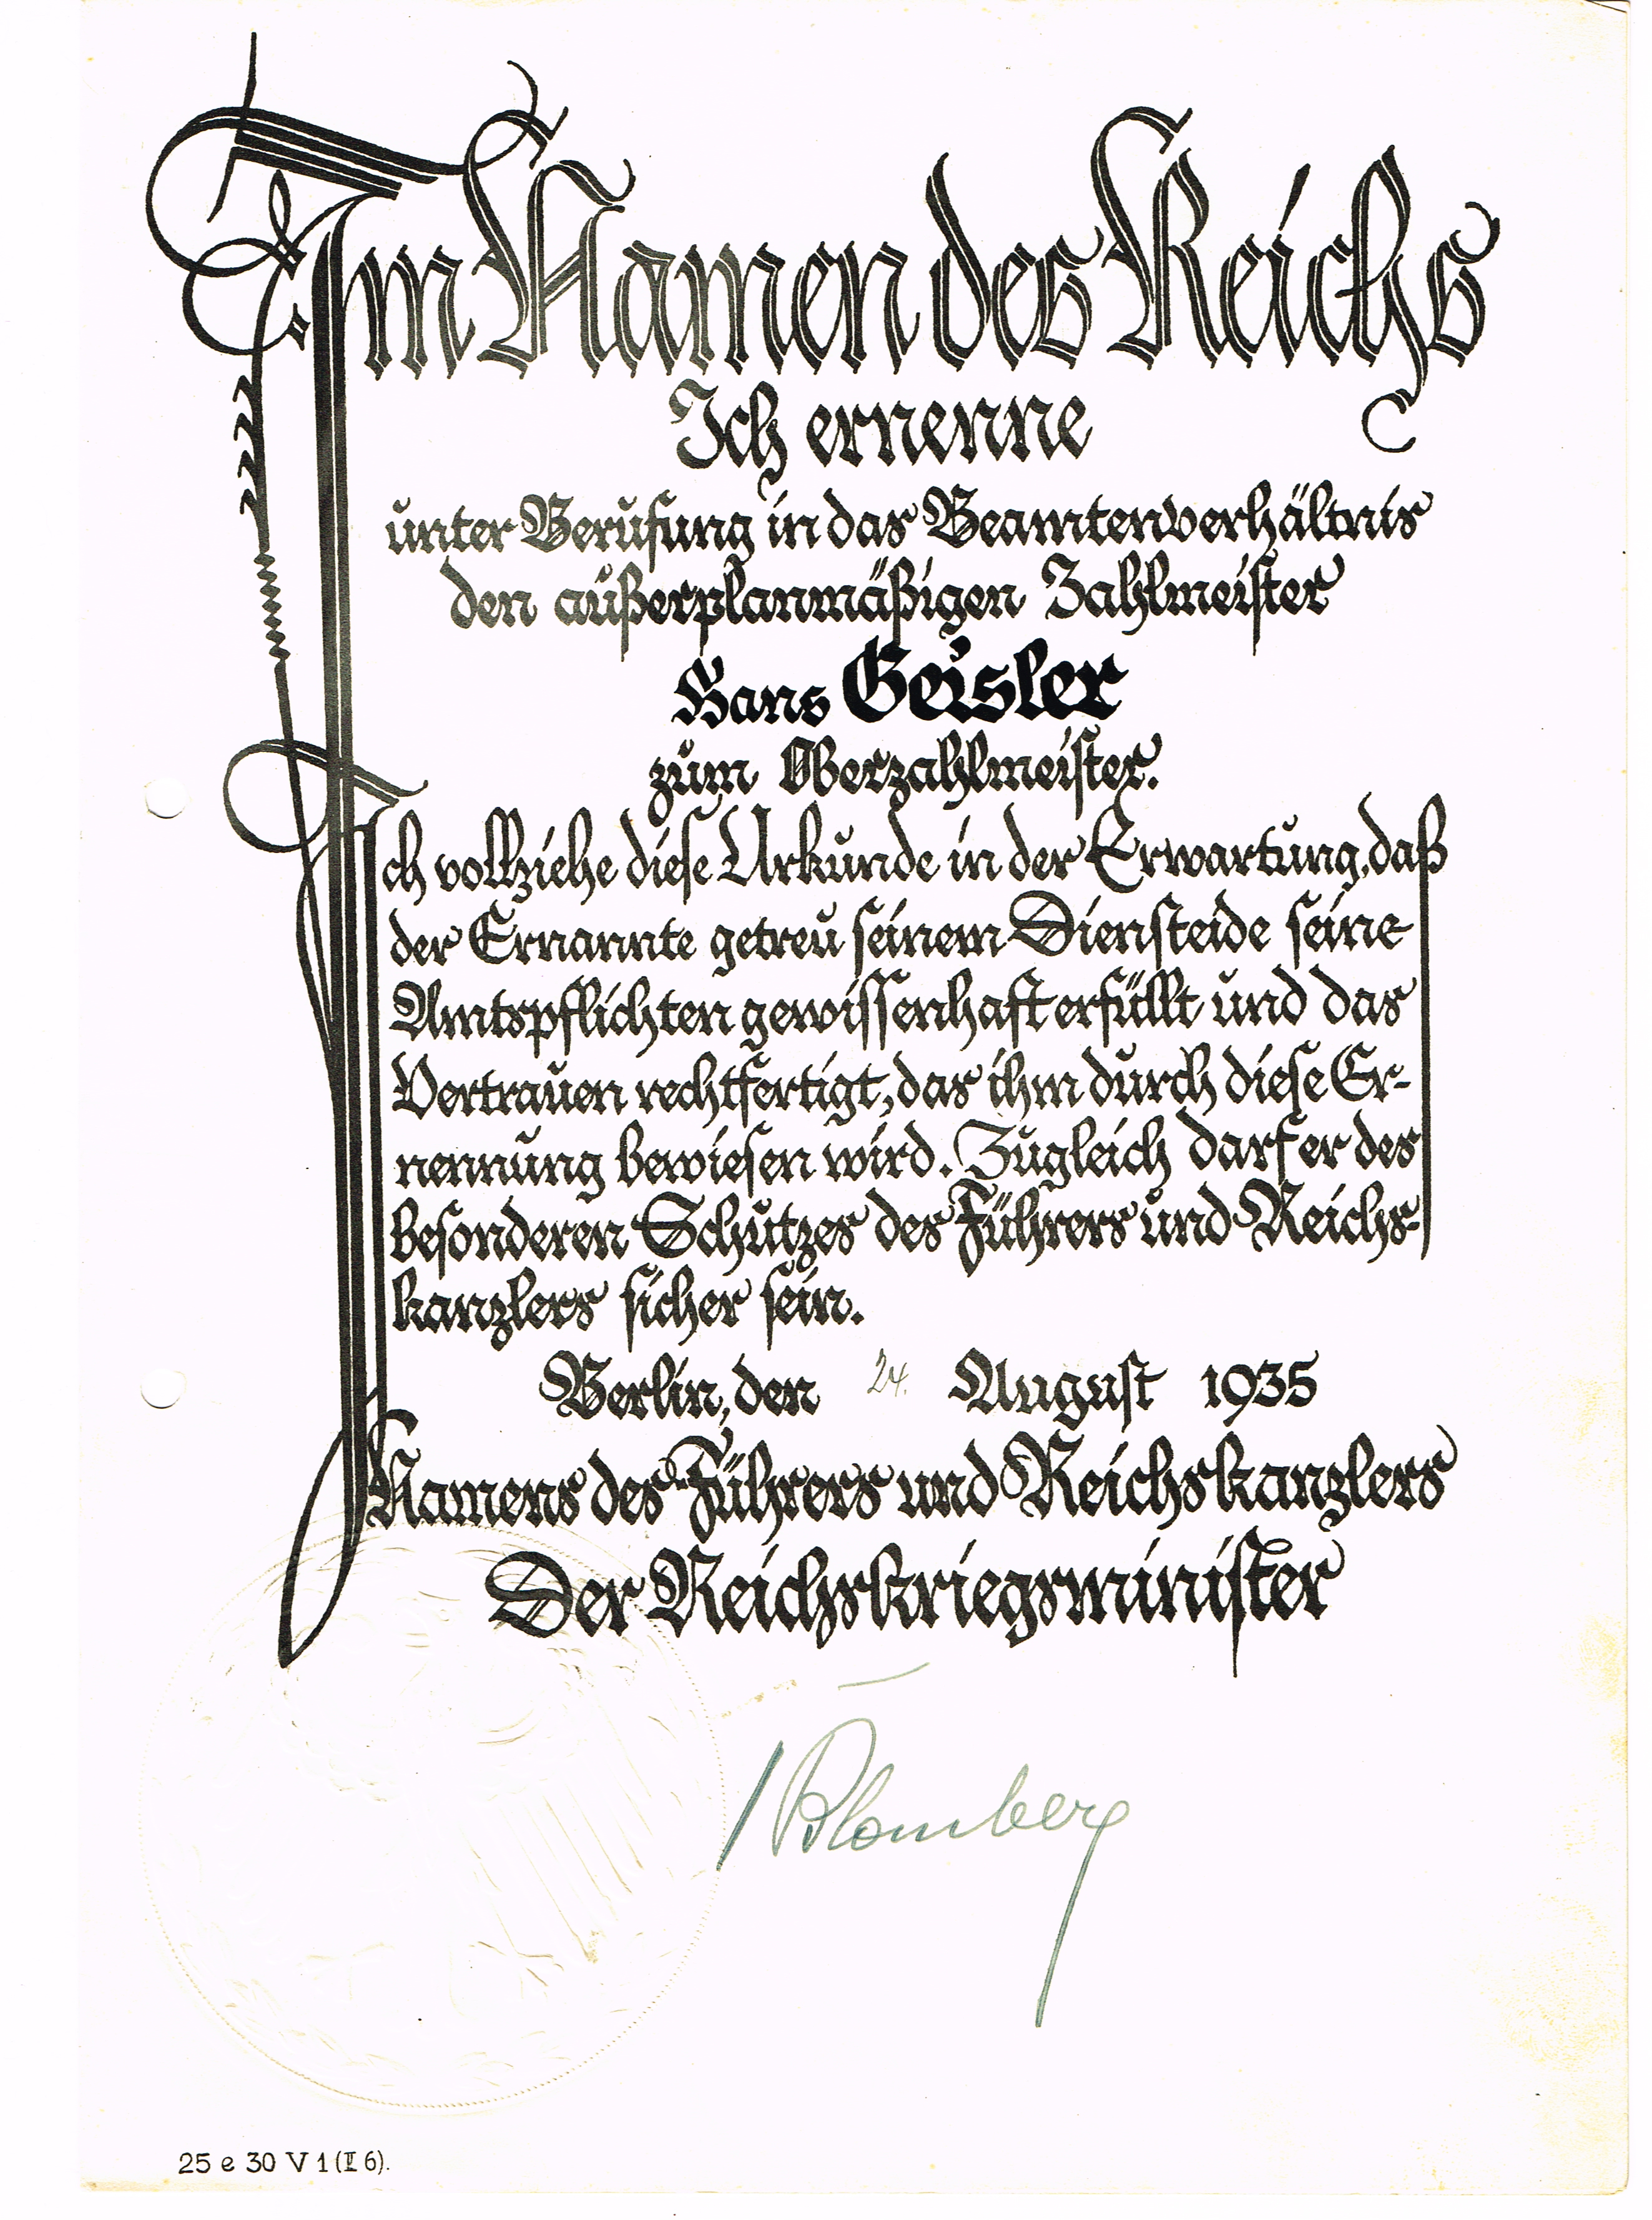 Im Namen des Reichs
Ich ernenne
unter Berufung in das Beamtenverhältnis
den außerplanmäßigen Zahlmeister
Hans Geisler
zum Oberzahlmeister.
Ich vollziehe diese Urkunde in der Erwartung, daß
der Ernannte getreu seinem Diensteide seine
Amtspflichten gewissenhaft erfüllt und das
Vertrauen rechtfertigt, das ihm durch diese Er-
nennung bewiesen wird. Zugleich darf er des
besonderen Schutzes des Führers und Reichs-
kanzlers sicher sein.
Berlin, den 24. August 1935
Namens des Führers und Reichskanzlers
Der Reichskriegsminister
Blomberg
25 e 30 V 1 (II 6).